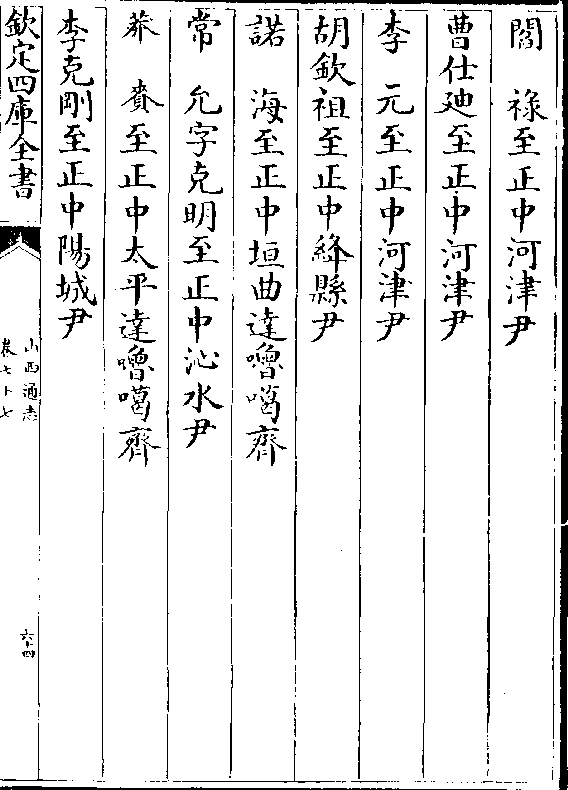 閻　祿至正中河津尹
曹仕廸至正中河津尹
李　元至正中河津尹
胡欽祖至正中絳縣尹
諾　海至正中垣曲達嚕噶齊
常　允字克明至正中沁水尹
莽　賚至正中太平達嚕噶齊
李克剛至正中陽城尹
欽定四庫全書
山西通志
卷七十七
六十四